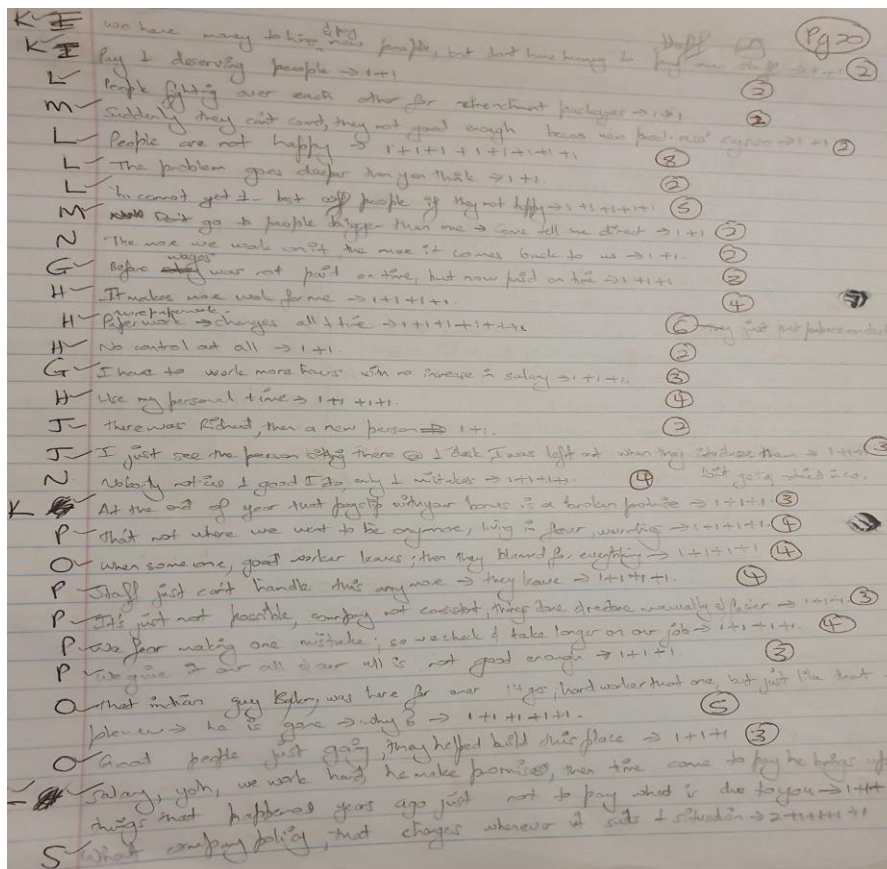 Pg 20
K I we have money to hire & pay new people, but dont have money to pay own staff → 1+1 (2)
K I Pay & deserving people → 1+1 (2)
L People fighting over each other for retrenchment packages → 1+1 (2)
M Suddenly they cant count, they not good enough becos new
L People are not happy → 1+1+1+1+1+1+1+1 (8)
L The problem goes deeper than you think → 1+1. (2)
L cannot get & best off people if they not happy → 1+1+1+1+1. (5)
M Dont go to people bigger than me → Come tell me direct → 1+1 (2)
N The more we work on it, the more it comes back to us → 1+1. (2)
G Before wages was not paid on time, but now paid on time → 1+1+1 (2)
H It makes more work for me → 1+1+1+1. (4)
H Paperwork more paperwork → changes all & time → 1+1+1+1+1+1 (6) they just put papers on desk
H No control at all → 1+1. (2)
G I have to work more hours with no increase in salary → 1+1+1. (3)
H Use my personal time → 1+1+1+1. (4)
J There was Richard, then a new person 1+1. (2)
J I just see the person sitting there @ & desk, I was left out when they introduce them → 1+1+1 (3)
N Nobody notices & good I do only & mistakes → 1+1+1+1. (4)
K At the end of year that payslip with your bonus is a broken promise → 1+1+1. (3)
P That not where we want to be anymore, living in fear, → 1+1+1+1. (4)
O when someone, good worker leaves, then they blamed for everything → 1+1+1+1 (4)
P Staff just can't handle this anymore → they leave → 1+1+1+1. (4)
P It's just not possible, company not consistent, things done & redone manually easier → 1+1+1. (3)
P We fear making one mistake; so we check & take longer on our job → 1+1+1+1. (4)
P we give it our all & our all is not good enough → 1+1+1. (3)
O That indian guy was here for over 14 yrs, hard worker that one, but just like that
he is gone → why? → 1+1+1+1+1. (5)
O Good people just going, they helped build this place → 1+1+1 (3)
Salary, yoh, we work hard he make promises, then time come to pay he brings up
things that happened years ago just not to pay what is due to you → 1+1+
S What company policy, that changes whenever it suits & situation → 2+1+1+1+1